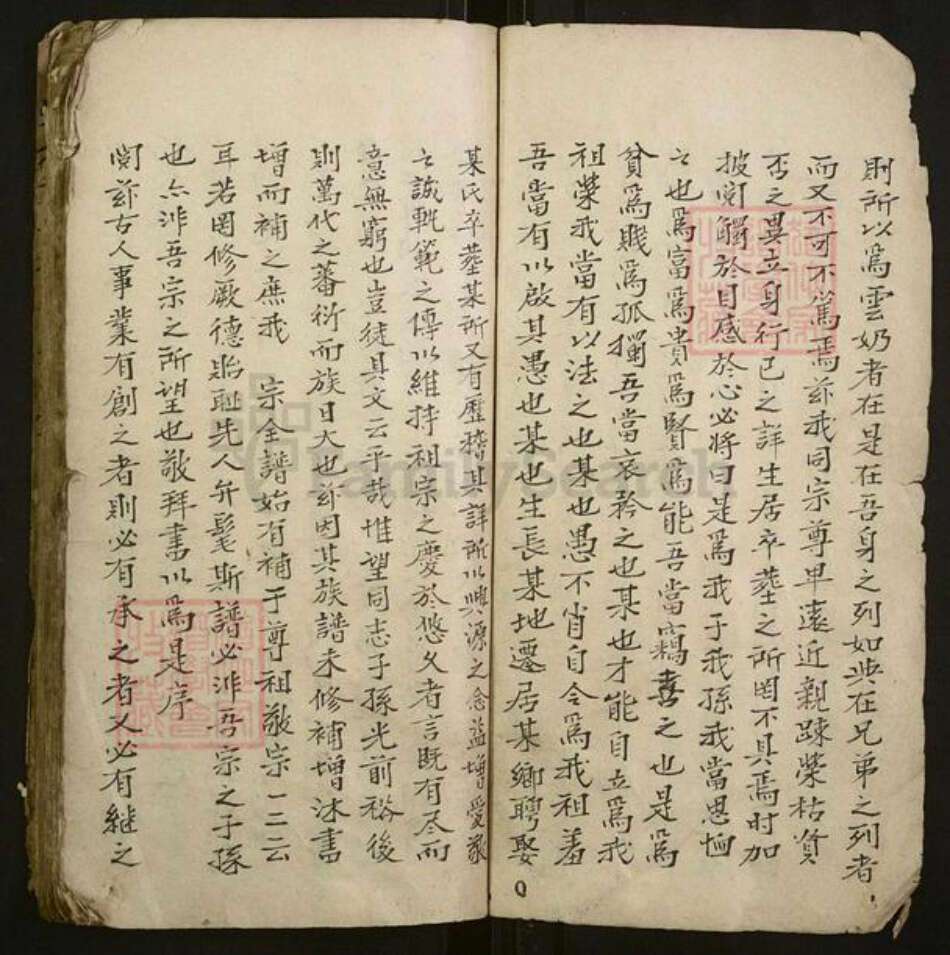 則所以爲雲奶者在是在吾身之列如此在兄弟之列者
而又不可不篤焉茲我同宗尊卑遠近親踈榮枯貧
否之異立身行己之詳生居卒葬之所罔不具焉时加
披閱觸於目感於心必將曰是爲我子我孫我當恩恤
之也爲富爲貴爲賢爲能吾當竊喜之也是爲
貧爲賤爲孤獨吾當哀矜之也某也才能自立爲我
祖榮我當有以法之也某也愚不肖自令爲我祖羞
吾當有以啟其愚也某也生長某地遷居某鄉聘娶
某氏卒葬某所又有歷稽其詳所以興源之念益增愛敬
之誠軌範之傳以維持祖宗之慶於悠久者言既有尽而
意無窮也豈徒具文云乎哉惟望同志子孫光前裕後
則萬代之蕃衍而族日大也茲因其族譜未修補增沐書
增而補之庶我 宗全譜始有補于尊祖敬宗一二云
耳若罔修厥德貽耻先人弁髦斯譜必非吾宗之子孫
也亦非吾宗之所望也敬拜書以爲是序
閱茲古人事業有創之者則必有承之者又必有継之
FamilySearch